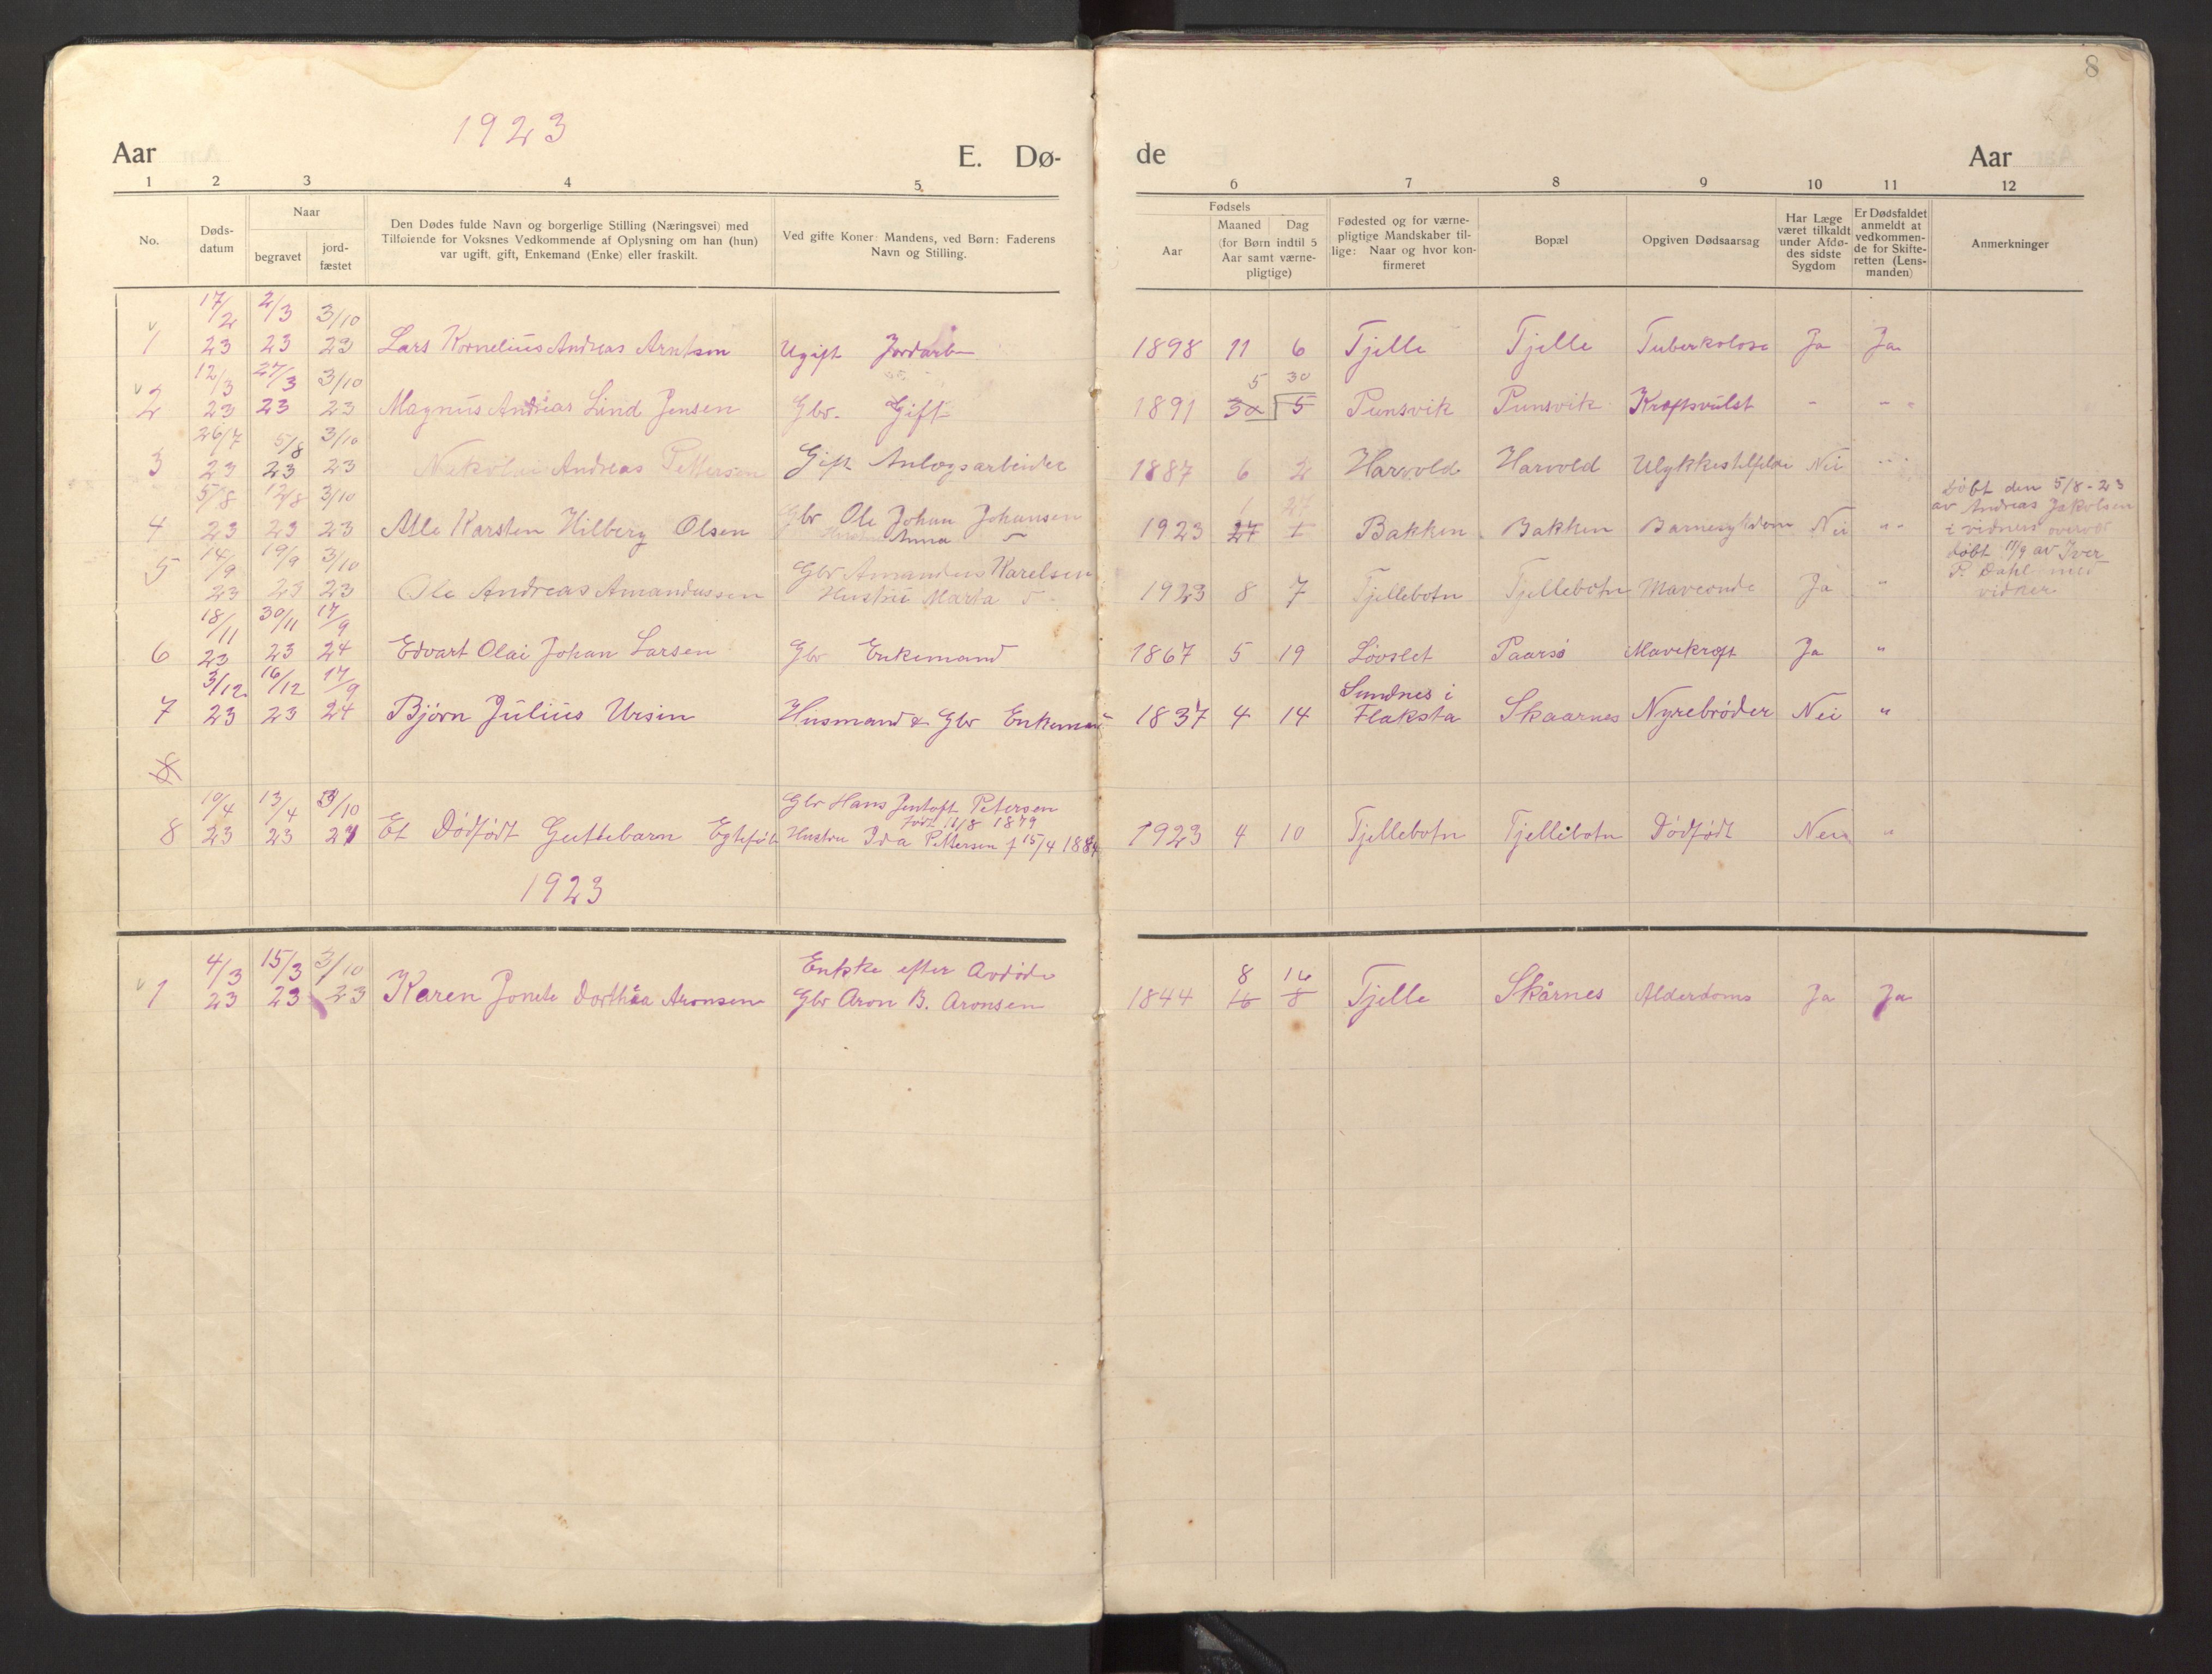 8
1923
Aar E. Dø- de Aar
1 2 3 4 5 6 7 8 9 10 11 12
No. Døds-datum Naar begravet jord-fæstet
Den Dødes fulde Navn og borgerlige Stilling (Næringsvei) med
Tilføiende for Voksnes Vedkommende af Oplysning om han (hun)
var ugift, gift, Enkemand (Enke) eller fraskilt.
Ved gifte Koner: Mandens, ved Børn: Faderens
Navn og Stilling.
Fødsels
Aar Maaned Dag
(for Børn indtil 5
Aar samt værne-
pligtige)
Fødested og for værne-
pligtige Mandskaber til-
lige: Naar og hvor kon-
firmeret
Bopæl
Opgiven Dødsaarsag
Har Læge
været tilkaldt
under Afdø-
des sidste
Sygdom
Er Dødsfaldet
anmeldt at
vedkommen-
de for Skifte-
retten (Lens-
manden)
Anmerkninger
17/2 2/3 3/10
1 23 23 23 Lars Kornelius Andreas Arntsen Ugift Jordarb 1898 11 6 Tjelle Tjelle Tuberkolose Ja Ja
12/3 27/3 3/10 5 30
2 23 23 23 Magnus Andreas Lind Jensen Gbr. Gift 1891 30 5 Punsvik Punsvik Kræftsvulst - - -
26/7 5/8 3/10
3 23 23 23 Nekolai Andreas Pettersen Gift Anlægsarbeider 1887 6 2 Harvold Harvold Ulykkestilfelde Nei "
5/8 12/8 3/10 Gbr Ole Johan Johansen 1 27
4 23 23 23 Atle Karsten Hilberg Olsen Anna 1923 27 1 Bakken Bakken Barnesykdom Nei "
døbt den 5/8-23
av Andreas Jakobsen
i vidners overvær
14/9 19/9 3/10 Gbr Amandus Karelsen
5 23 23 23 Ole Andreas Amandussen Hustru Marta 1923 8 7 Tjellebotn Tjellebotn Maveonde Ja "
døbt 11/9 av Iver
P. Dahl med
vidner
18/11 30/11 17/9
6 23 23 24 Edvart Olai Johan Larsen Gbr Enkemand 1867 5 19 Løvslet Paarsø Mavekræft Ja "
3/12 16/12 17/9 Sundnes i
7 23 23 24 Bjørn Julius Ursin Husmand & Gbr Enkemand 1837 4 14 Flaksta Skaarnes Nyrebrøder Nei "
8
10/4 13/4 3/10 Gbr Hans Jentoft Petersen
født 12/8 1879
8 23 23 23 Et Dødfødt Guttebarn Egtefødt Hustru Ida Pettersen f 15/4 1884 1923 4 10 Tjellebotn Tjellebotn Dødfødt Nei "
1923
4/3 15/3 3/10 Enkke efter Avdøde 8 16
1 23 23 23 Karen Jonete Dorthea Aronsen Gbr Aron B. Aronsen 1844 16 8 Tjelle Skårnes Alderdoms Ja Ja